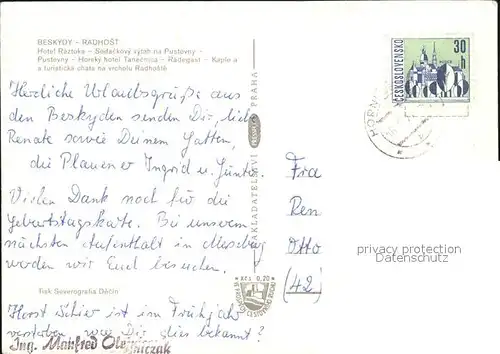 BESKYDY – RADHOŠŤ
Hotel Ráztoka – Sedačkový výtah na Pustevny –
Pustevny – Horský hotel Tanečnica – Radegast – Kaple a
a turistická chata na vrcholu Radhoště
Herzliche Urlaubsgrüße aus
den Beskyden senden Dir, liebe
Renate sowie Deinem Gatten,
die Plauener Ingrid u. Günter.
Vielen Dank noch für die
Geburtstagskarte. Bei unserem
nächsten Aufenthalt in
werden wir Euch besuchen.
Tisk Severografia Děčín
Horst Schier ist im Frühjahr
verstorben, war Dir dies bekannt?
Ing. Manfred
NAKLADATELSTVÍ PRESSFOTO PRAHA
0,20
ČESKOSLOVENSKO
30
h
HORNÍ
Fra
Ren
Otto
(42)
privacy protection